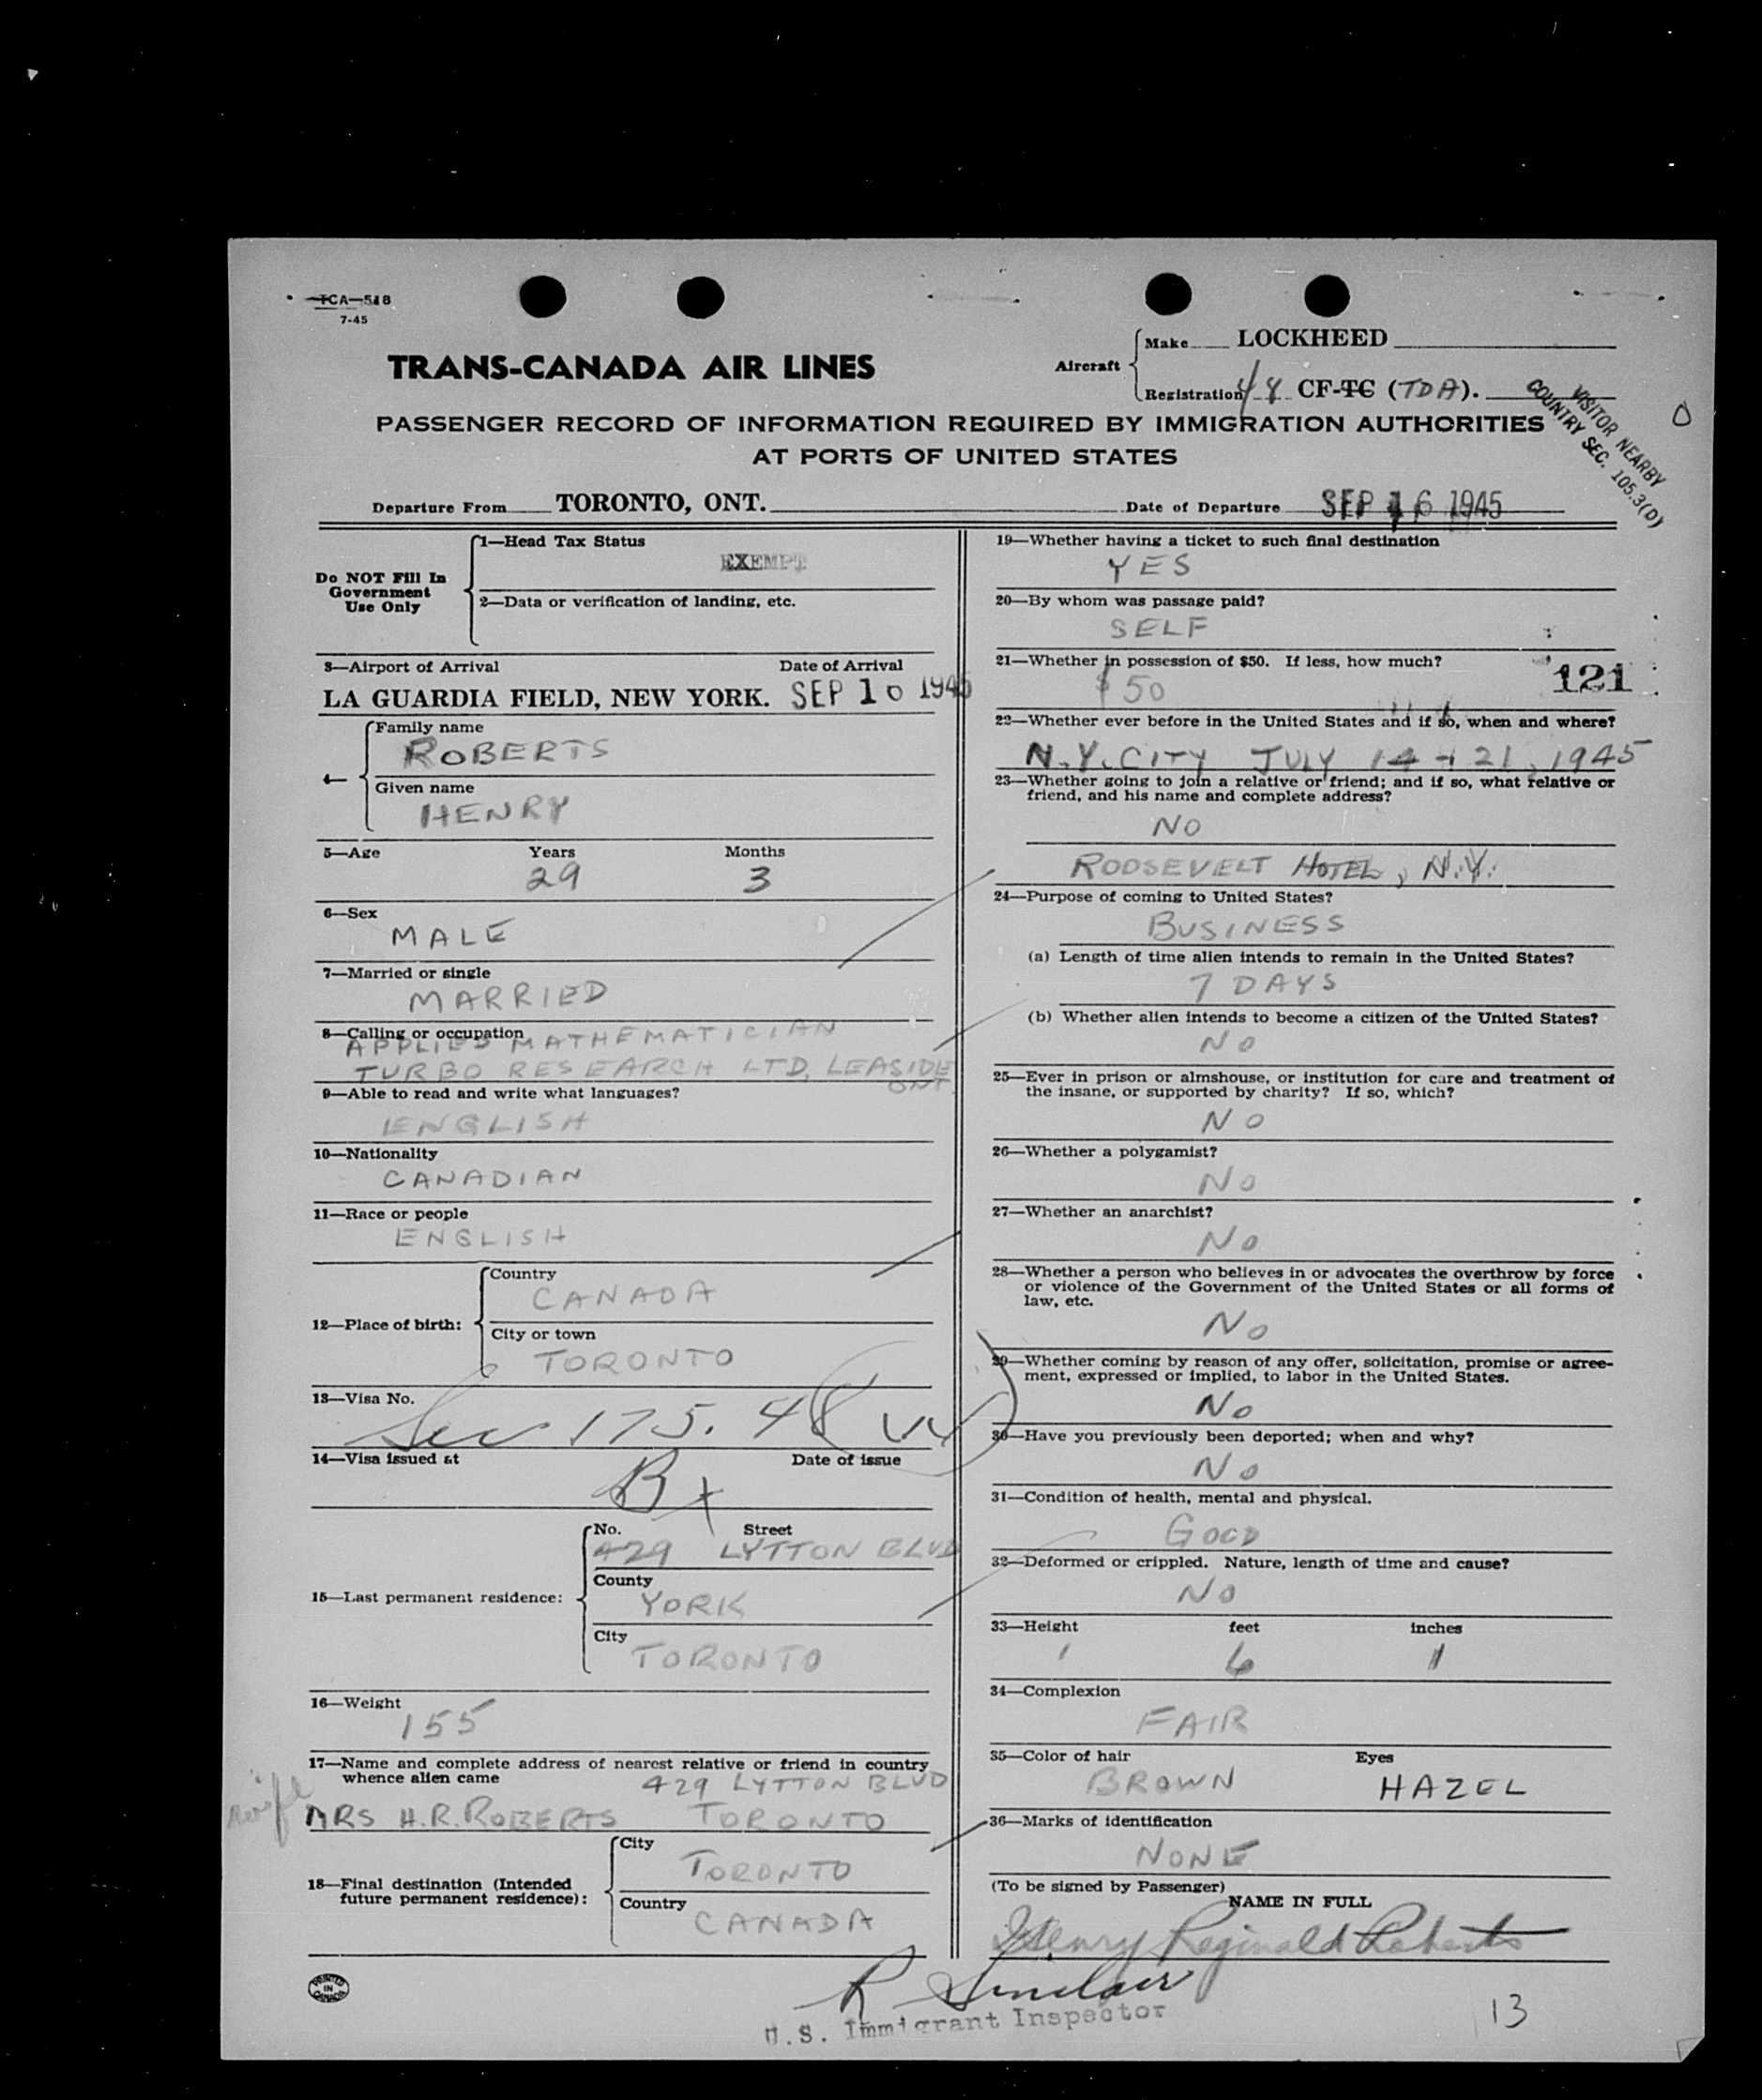 TCA—518
7-45
TRANS-CANADA AIR LINES
Aircraft
Make LOCKHEED
Registration 48 CF-TC (TDA).
VISITOR NEARBY
COUNTRY SEC. 105.3(D)
O
PASSENGER RECORD OF INFORMATION REQUIRED BY IMMIGRATION AUTHORITIES
AT PORTS OF UNITED STATES
Departure From TORONTO, ONT. Date of Departure SEP 16 1945
Do NOT Fill In
Government
Use Only
1—Head Tax Status
EXEMPT
2—Data or verification of landing, etc.
3—Airport of Arrival Date of Arrival
LA GUARDIA FIELD, NEW YORK. SEP 16 1945
4—
Family name
ROBERTS
Given name
HENRY
5—Age Years Months
29 3
6—Sex
MALE
7—Married or single
MARRIED
8—Calling or occupation
APPLIED MATHEMATICIAN
TURBO RESEARCH LTD, LEASIDE
ONT.
9—Able to read and write what languages?
ENGLISH
10—Nationality
CANADIAN
11—Race or people
ENGLISH
12—Place of birth:
Country
CANADA
City or town
TORONTO
13—Visa No.
Sec 175.48
14—Visa issued at Date of issue
15—Last permanent residence:
No. Street
429 LYTTON BLVD
County
YORK
City
TORONTO
16—Weight
155
17—Name and complete address of nearest relative or friend in country
whence alien came
429 LYTTON BLVD
wife
MRS H.R. ROBERTS TORONTO
18—Final destination (Intended
future permanent residence):
City
TORONTO
Country
CANADA
PRINTED
IN
CANADA
19—Whether having a ticket to such final destination
YES
20—By whom was passage paid?
SELF
21—Whether in possession of $50. If less, how much?
$50
121
22—Whether ever before in the United States and if so, when and where?
N.Y. CITY JULY 14-21, 1945
23—Whether going to join a relative or friend; and if so, what relative or
friend, and his name and complete address?
NO
ROOSEVELT HOTEL, N.Y.
24—Purpose of coming to United States?
BUSINESS
(a) Length of time alien intends to remain in the United States?
7 DAYS
(b) Whether alien intends to become a citizen of the United States?
NO
25—Ever in prison or almshouse, or institution for care and treatment of
the insane, or supported by charity? If so, which?
NO
26—Whether a polygamist?
NO
27—Whether an anarchist?
NO
28—Whether a person who believes in or advocates the overthrow by force
or violence of the Government of the United States or all forms of
law, etc.
NO
29—Whether coming by reason of any offer, solicitation, promise or agree-
ment, expressed or implied, to labor in the United States.
NO
30—Have you previously been deported; when and why?
NO
31—Condition of health, mental and physical.
GOOD
32—Deformed or crippled. Nature, length of time and cause?
NO
33—Height feet inches
6 1
34—Complexion
FAIR
35—Color of hair Eyes
BROWN HAZEL
36—Marks of identification
NONE
(To be signed by Passenger)
NAME IN FULL
Henry Reginald Roberts
R Sinclair
U.S. Immigrant Inspector
13